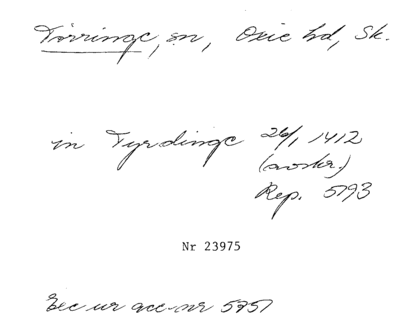 Törringe, sn, Oxie hd, Sk.
in Tyrdinge 26/1 1412
(avskr.)
Rep. 5193
Nr 23975
Exc ur acc-nr 5751